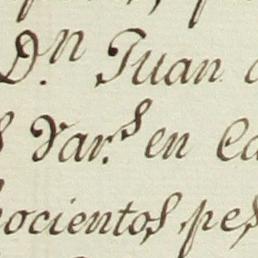 D.n Juan
Var.s en Ca
ocientos, pes